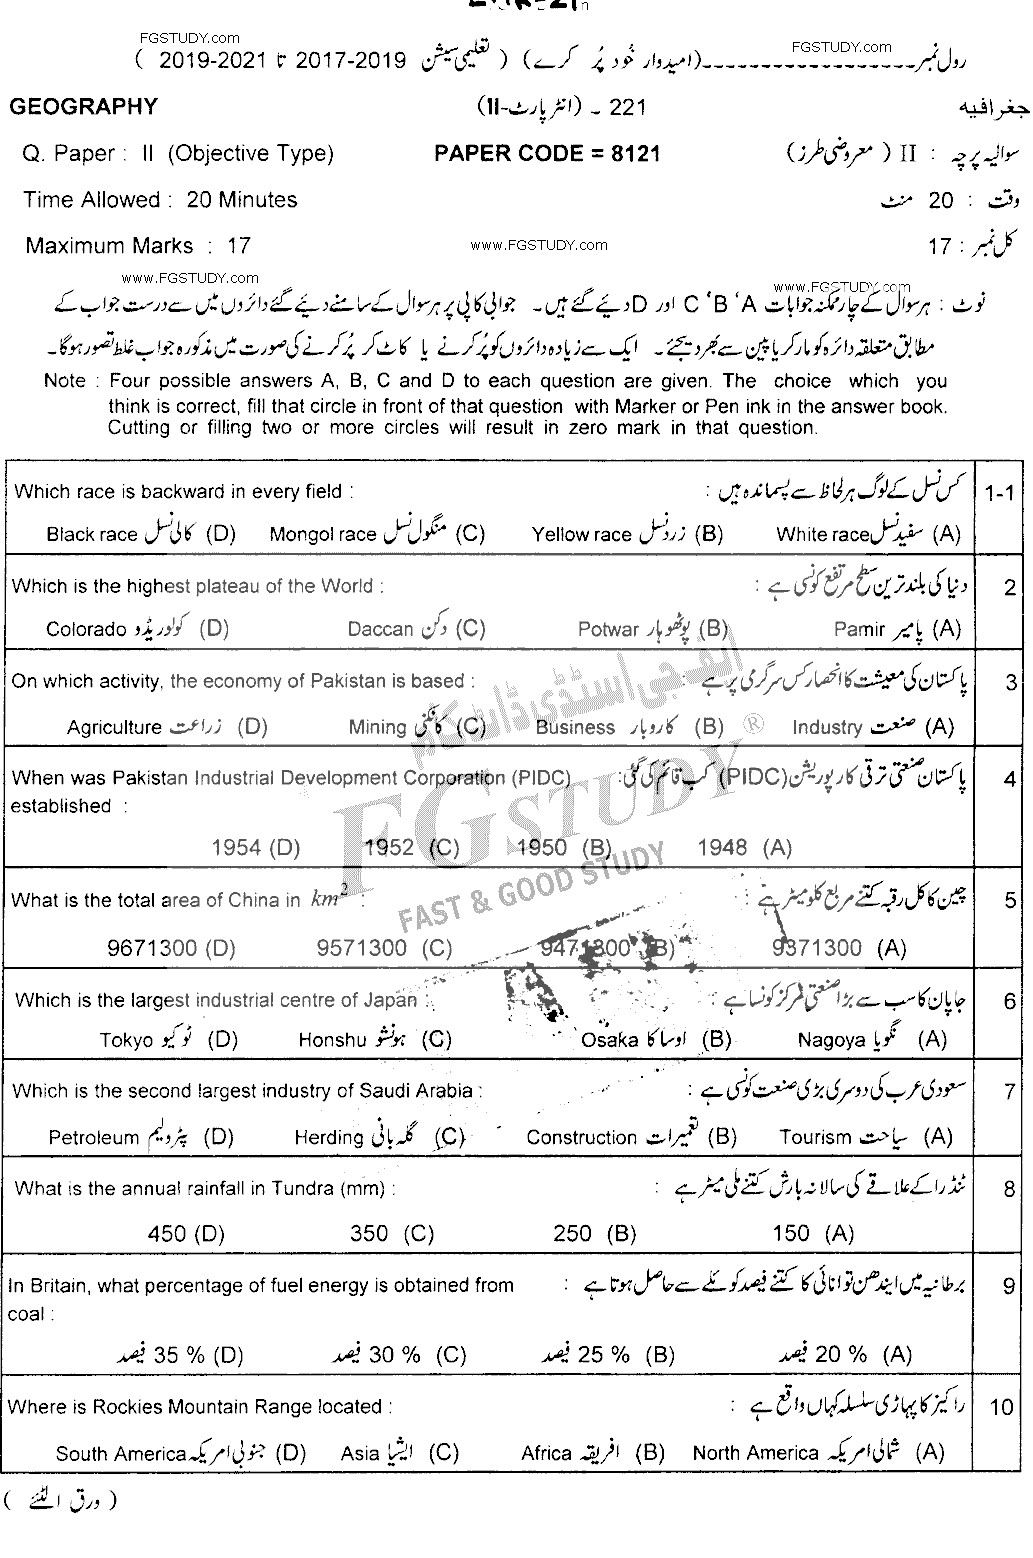 FGSTUDY.com
FGSTUDY.com
رول نمبر ------------------ (امیدوار خود پُر کرے) ( تعلیمی سیشن 2017-2019 تا 2019-2021 )
GEOGRAPHY 221 ـ (انٹر پارٹ-II) جغرافیہ
Q. Paper : II (Objective Type) PAPER CODE = 8121 سوالیہ پرچہ : II ( معروضی طرز)
Time Allowed : 20 Minutes وقت : 20 منٹ
Maximum Marks : 17 www.FGSTUDY.com کل نمبر : 17
www.FGSTUDY.com
www.FGSTUDY.com
نوٹ : ہر سوال کے چار ممکنہ جوابات A ‘B ‘C اور D دیئے گئے ہیں۔ جوابی کاپی پر ہر سوال کے سامنے دیئے گئے دائروں میں سے درست جواب کے
مطابق متعلقہ دائرہ کو مارکر یا پین سے بھر دیجئے۔ ایک سے زیادہ دائروں کو پُر کرنے یا کاٹ کر پُر کرنے کی صورت میں مذکورہ جواب غلط تصور ہوگا۔
Note : Four possible answers A, B, C and D to each question are given. The choice which you
think is correct, fill that circle in front of that question with Marker or Pen ink in the answer book.
Cutting or filling two or more circles will result in zero mark in that question.
Which race is backward in every field : کس نسل کے لوگ ہر لحاظ سے پسماندہ ہیں : 1-1
Black race کالی نسل (D) Mongol race منگول نسل (C) Yellow race زرد نسل (B) White race سفید نسل (A)
Which is the highest plateau of the World : دنیا کی بلند ترین سطح مرتفع کونسی ہے : 2
Colorado کولوریڈو (D) Daccan دکن (C) Potwar پوٹھوہار (B) Pamir پامیر (A)
On which activity, the economy of Pakistan is based : پاکستان کی معیشت کا انحصار کس سرگرمی پر ہے : 3
Agriculture زراعت (D) Mining کانکنی (C) Business کاروبار (B) Industry صنعت (A)
When was Pakistan Industrial Development Corporation (PIDC) پاکستان صنعتی ترقی کارپوریشن (PIDC) کب قائم کی گئی: 4
established :
1954 (D) 1952 (C) 1950 (B) 1948 (A)
What is the total area of China in km² : چین کا کل رقبہ کتنے مربع کلومیٹر ہے : 5
9671300 (D) 9571300 (C) 9471300 (B) 9371300 (A)
Which is the largest industrial centre of Japan : جاپان کا سب سے بڑا صنعتی مرکز کونسا ہے : 6
Tokyo ٹوکیو (D) Honshu ہونشو (C) Osaka اوساکا (B) Nagoya نگویا (A)
Which is the second largest industry of Saudi Arabia : سعودی عرب کی دوسری بڑی صنعت کونسی ہے : 7
Petroleum پٹرولیم (D) Herding گلہ بانی (C) Construction تعمیرات (B) Tourism سیاحت (A)
What is the annual rainfall in Tundra (mm) : ٹنڈرا کے علاقے کی سالانہ بارش کتنے ملی میٹر ہے : 8
450 (D) 350 (C) 250 (B) 150 (A)
In Britain, what percentage of fuel energy is obtained from برطانیہ میں ایندھن توانائی کا کتنے فیصد کوئلے سے حاصل ہوتا ہے : 9
coal :
35 % فیصد (D) 30 % فیصد (C) 25 % فیصد (B) 20 % فیصد (A)
Where is Rockies Mountain Range located : راکیز کا پہاڑی سلسلہ کہاں واقع ہے : 10
South America جنوبی امریکہ (D) Asia ایشیا (C) Africa افریقہ (B) North America شمالی امریکہ (A)
( ورق الٹئے )
ایف جی اسٹڈی ڈاٹ کام
®
FGSTUDY
FAST & GOOD STUDY